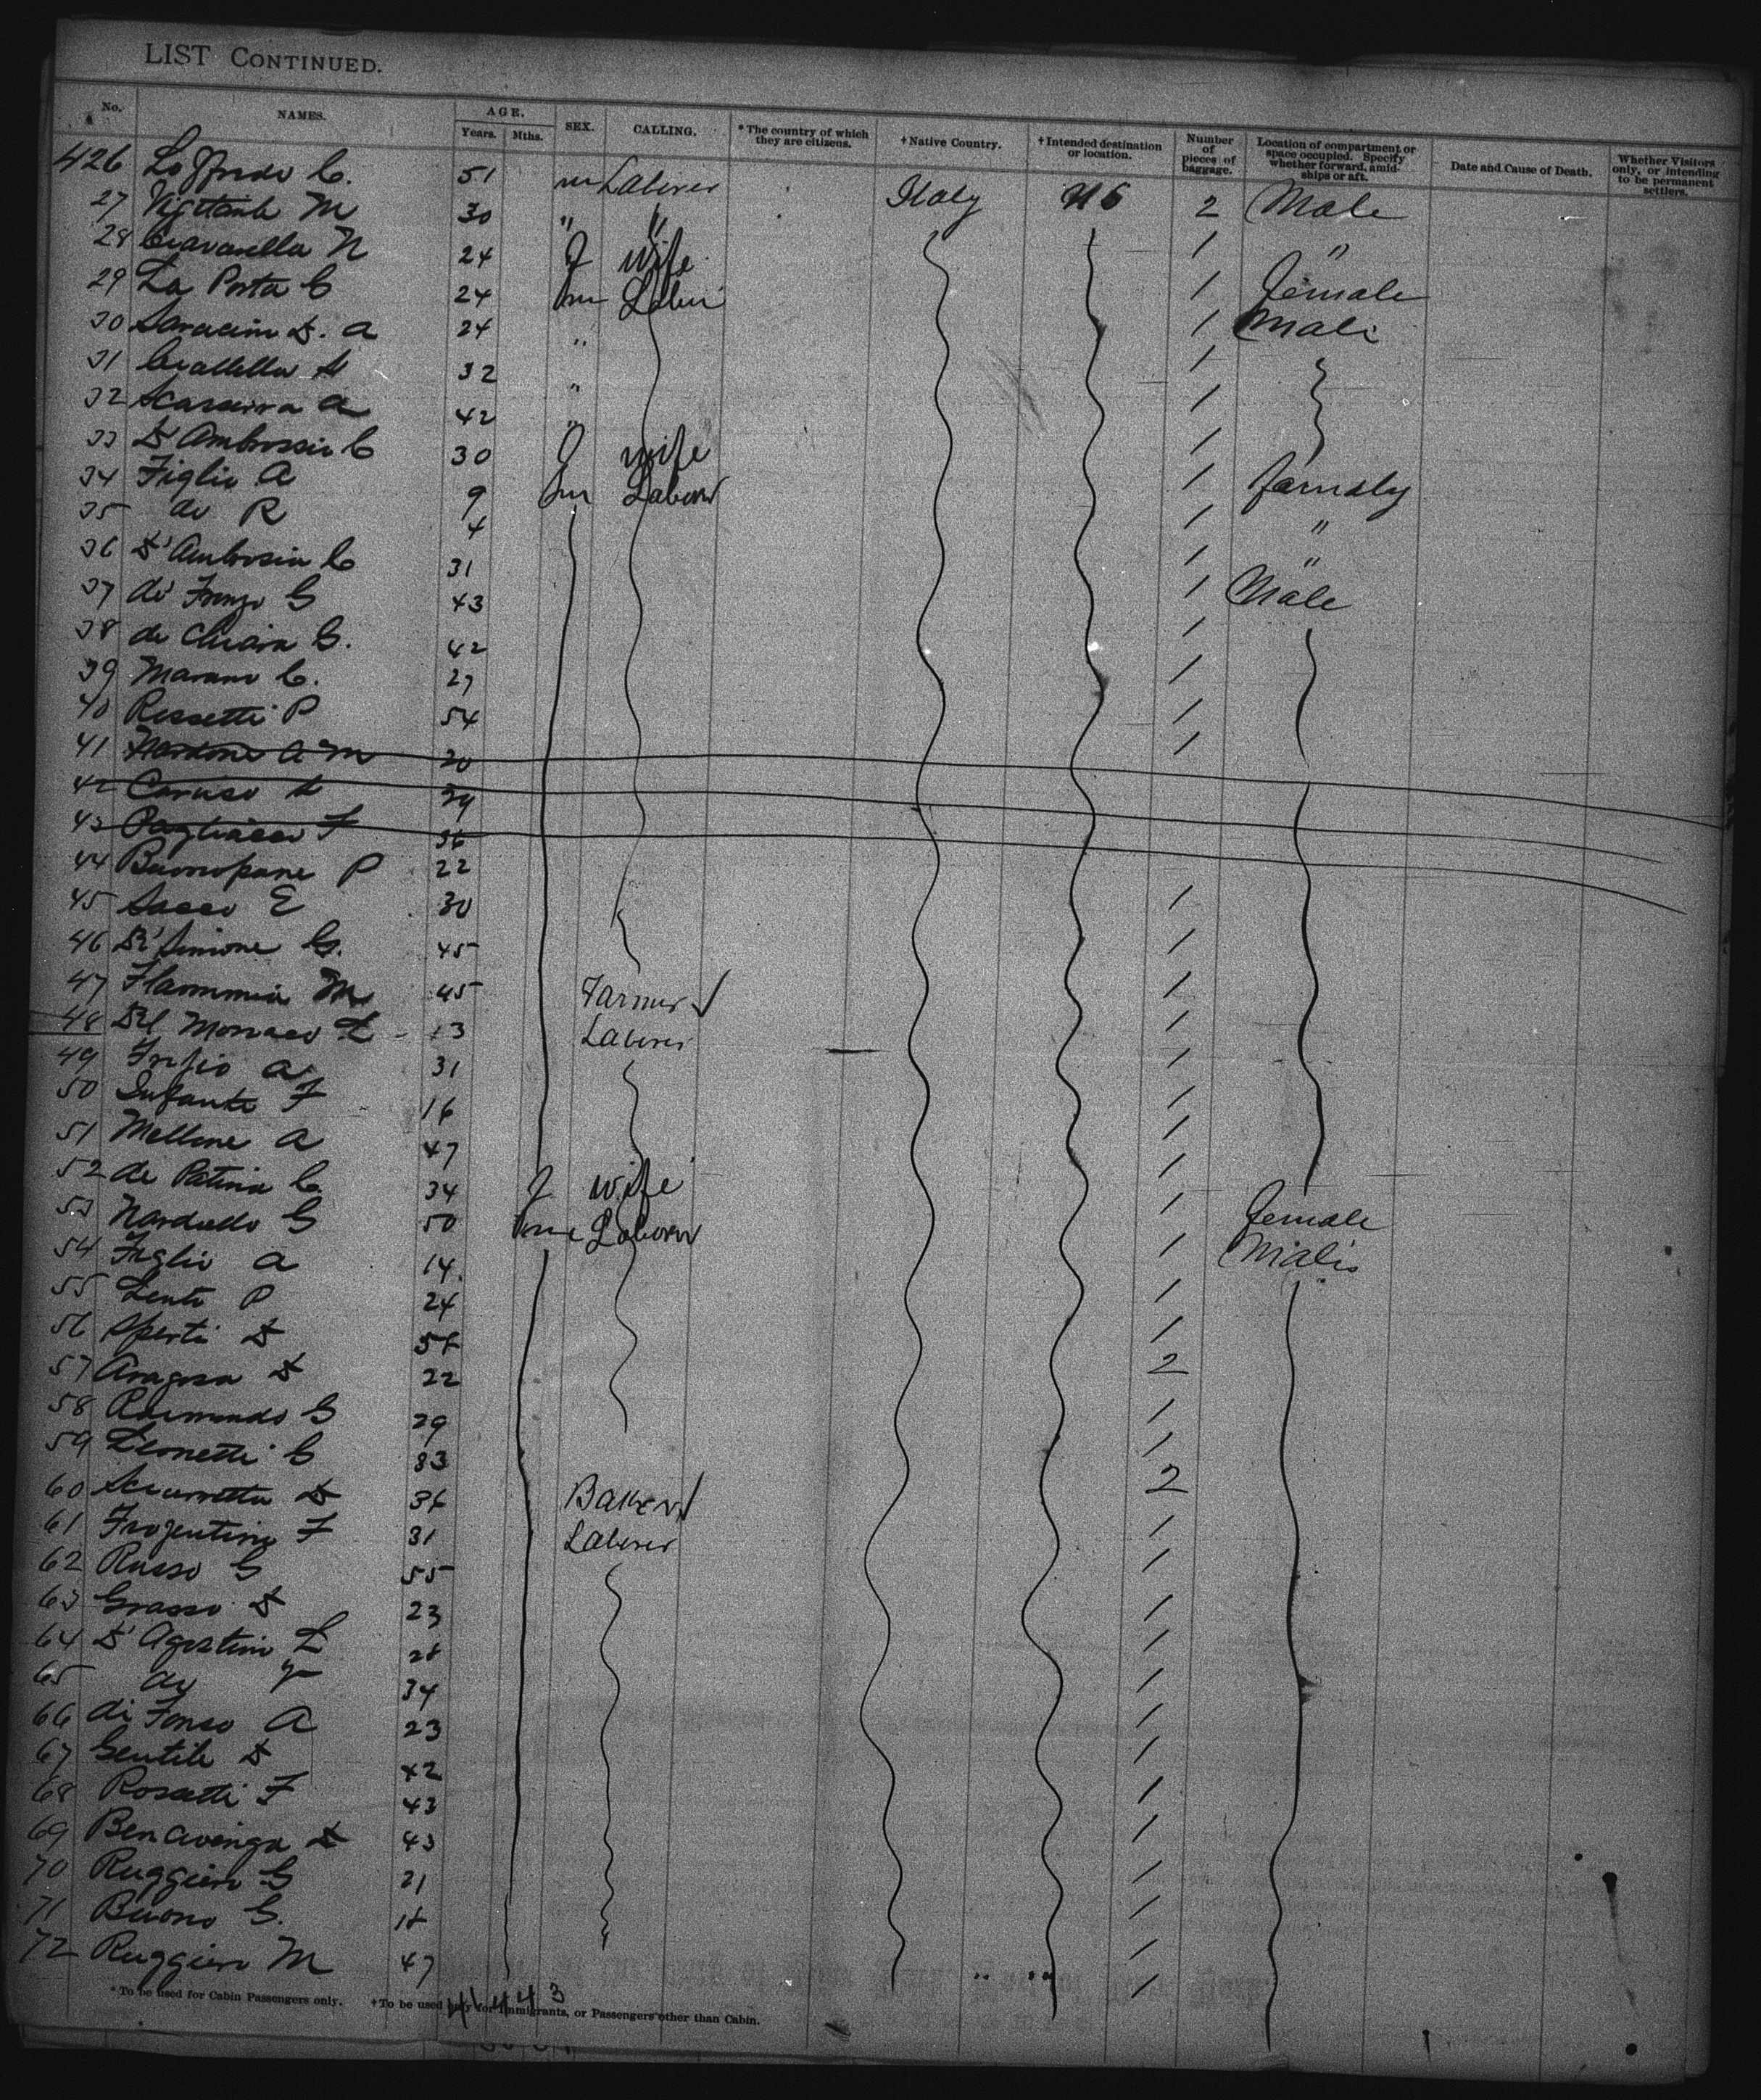 LIST CONTINUED.
No. NAMES. AGE. Years. Mths. SEX. CALLING. * The country of which they are citizens. † Native Country. † Intended destination or location. Number of pieces of baggage. Location of compartment or space occupied. Specify whether forward, amidships or aft. Date and Cause of Death. Whether Visitors only, or intending to be permanent settlers.
426 Loffredo C. 51 m Laborer Italy US 2 Male
27 M 30 " " / "
28 Ciavarella N 24 f wife / female
29 La Porta C 24 m Labor / Male
30 D. A 24 " /
31 Ciallella 32 " /
32 A 42 " /
33 D'Ambrosio C 30 f wife / family
34 Figlio A 9 m Laborer / "
35 do R 4 / "
36 D'Ambrosio C 31 / Male
37 G 43 /
38 de Chiara G. 42 /
39 Marano C. 27 /
40 Rossetti P 54 /
41 Nardone A M 20
42 Caruso 29
43 Pagliacco F 36
44 Buonopane P 22 /
45 Sacco E 30 /
46 Di Simone G. 45 /
47 Flammia M 45 Farmer ✓ /
48 Del Monaco L 13 Laborer /
49 A 31 /
50 Infante F 16 /
51 Mellone A 47 /
52 de C 34 f wife / female
53 Nardiello G 50 m Laborer / Males
54 Figlio A 14 /
55 Lento P 24 /
56 D 2
57 Aragosa D 22 /
58 Raimondo G 29 /
59 Leonetti G 33 2
60 Sciarretta D Baker ✓ /
61 F 31 Laborer /
62 Russo G 55 /
63 Grasso D 23 /
64 D'Agostino L /
65 do 34 /
66 di Fonso A 23 /
67 Gentile D 42 /
68 Rossetti F 43 /
69 Bencivenga 43 /
70 Ruggiero G 21 /
71 Buono G. /
72 Ruggiero M 47 /
* To be used for Cabin Passengers only. † To be used only for Immigrants, or Passengers other than Cabin.